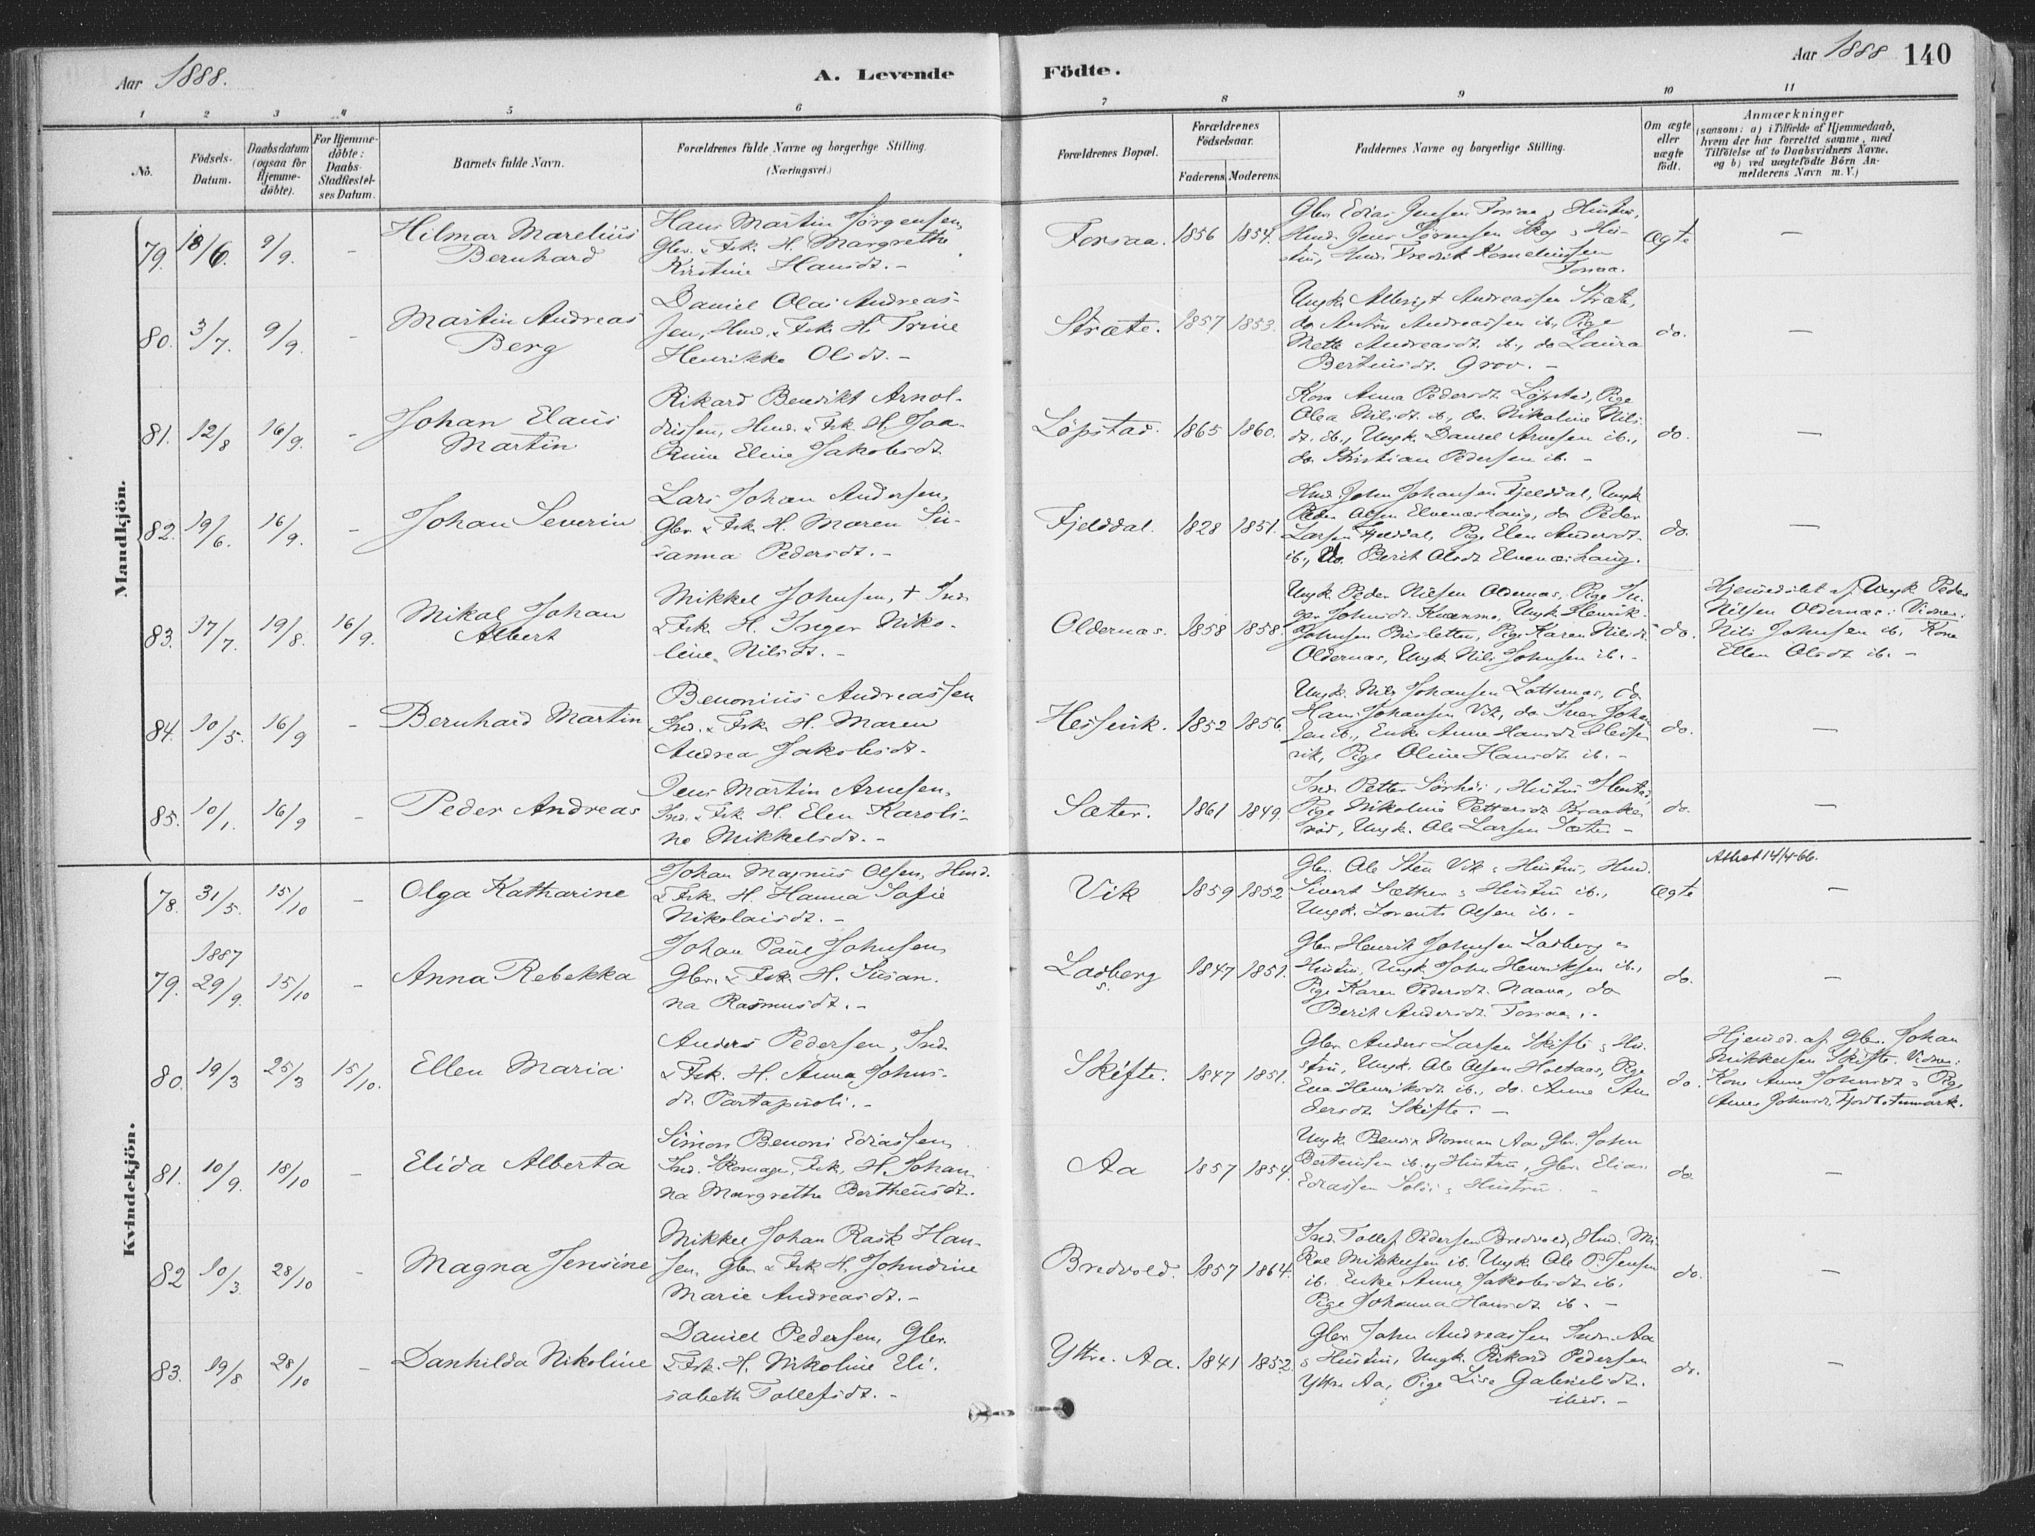 Aar 1888.
A. Levende Födte.
Aar 1888 140
1 2 3 4 5 6 7 8 9 10 11
No.
Födsels-Datum.
Daabsdatum (ogsaa for Hjemme-døbte).
For Hjemme-døbte: Daabs-Stadfæstel-ses Datum.
Barnets fulde Navn.
Forældrenes fulde Navne og borgerlige Stilling.
(Næringsvei.)
Forældrenes Bopæl.
Forældrenes Födselsaar.
Faderens. Moderens.
Faddernes Navne og borgerlige Stilling.
Om ægte eller uægte födt.
Anmærkninger
(saasom: a) i Tilfælde af Hjemmedaab, hvem der har forrettet samme, med Tilföielse af to Daabsvidners Navne, og b) ved uægtefödte Börn Anmelderens Navn m. V.)
Mandkjön.
79. 18/6. 9/9. - Hilmar Marelius Bernhard
Hans Martin Jørgensen,
Gbr. & Fsk. H. Margrethe
Kirstine Hansdt. -
Forsaa. 1856 1854.
Gbr. Edias Jensen Forsaa & Hustru,
Hmd. Jens Sørensen Skog & Hu-
stru, Hmd. Fredrik Kornelinssen
Forsaa.
Ægte -
80. 3/7. 9/9. - Martin Andreas Berg
Daniel Olai Andreas-
sen, Hmd. & Fsk. H. Trine
Henrikke Olsdt. -
Stræte. 1857 1853.
Ungk. Albrigt Andreassen Stræte,
do Anton Andreassen ib., Pige
Mette Andreasdt. ib., do Laura
Berteusdt. Grov. -
do. -
81. 12/8 16/9. - Johan Elaus Martin
Rikard Benedikt Arnol-
dussen, Hmd. & Fsk. H. Joa-
kime Eline Jakobsdt.
Löpstad. 1865 1860.
Kone Anna Pedersdt. Löpstad, Pige
Olea Nilsdt. ib., do. Nikoline Nils-
dt. ib., Ungk. Daniel Arnesen ib.,
do. Kristian Pedersen ib. -
do. -
82. 19/6. 16/9. - Johan Severin
Lars Johan Andersen,
Gbr. & Fsk. H. Maren Su-
sanna Pedersdt. -
Fjelddal. 1828 1851.
Hmd. John Johansen Fjelddal, Ungk.
Peder Olsen Elvenæshaug, do Peder
Larsen Fjelddal, Pige Elen Andersdt.
ib., do. Berit Olsdt. Elvenæshaug.
do. -
83. 17/7. 19/8. 16/9. Mikal Johan Albert
Mikkel Johnsen, + Ind.
& Fsk. H. Inger Niko-
line Nilsdt. -
Oldernas. 1858 1858
Ungk. Peder Nilsen Oldernas, Pige In-
ger Johnsdt. Kvanmo, Ungk. Henrik
Johnsen Brisletten, Pige Karen Nilsdt.
Oldernas, Ungk. Nils Johnsen ib. -
do.
Hjemmedøbt af Ungk. Peder
Nilsen Oldernas. Vidner:
Nils Johnsen ib. Kone
Ellen Olsdt. ib. -
84. 10/5. 16/9 - Bernhard Martin
Benonius Andreassen
Ind. & Fsk. H. Maren
Andrea Jakobsdt. -
Hessvik. 1852 1856.
Ungk. Nils Johansen Latternas, do
Hans Johansen Vik, do Iver Johan-
sen ib., Enke Anne Hansdt. Hess-
vik, Pige Oline Hansdt. ib. -
do. -
85. 10/1. 16/9 - Peder Andreas
Jens Martin Arnesen,
Ind. & Fsk. H. Elen Karoli-
ne Mikkelsdt. -
Sæter. 1861 1849.
Pige Nikoline Pettersdt.
Ungk. Ole Larsen Sæter -
do. -
Kvindekjön.
78. 31/5. 15/10 - Olga Katharine
Johan Magnus Olsen, Hmd.
& Fsk. H. Hanna Sofie
Nikolaisdt. -
Vik 1859 1852
Gbr. Ole Sten Vik & Hustru, Hmd.
Sivert Sæther & Hustru ib.,
Ungk. Lorents Olsen ib. -
Ægte
Attest 14/4-66.
-
79. 1887 29/9. 15/10 - Anna Rebekka
Johan Paul Johnsen
Gbr. & Fsk. H. Susan-
na Rasmusdt. -
Ladberg s. 1847 1851.
Gbr. Henrik Johnsen Ladberg &
Hustru, Ungk. John Henriksen ib.,
Pige Karen Pedersdt. Naava, do
Berit Andersdt. Forsaa. -
do. -
80. 19/3 25/3 15/10. Ellen Maria
Anders Pedersen, Ind.
& Fsk. H. Anna Johns-
dt. Partapuoli. -
Skifte. 1847 1851.
Gbr. Anders Larsen Skifte & Hu-
stru, Ungk. Ole Olsen Holtaas, Pige
Ena Henriksdt. ib., do. Anne An-
dersdt. Skifte. -
do.
Hjemed. af Gbr. Johan
Mikkelsen Skifte. Vidner:
Kone Anne Johnsdt. & Pige
Anne Johnsdt. Fjordbotnmark.
81. 10/9. 18/10 - Elida Alberta
Simon Benoni Ediassen,
Ind. Skomager, Fsk, H. Johan-
na Margrethe Bertheusdt.
Aa 1857 1854.
Ungk. Bendix Norman Aa, Gbr. John
Berteusen ib. & Hustru, Gbr. Elias
Ediassen & Hustru. -
do -
82 10/3. 28/10 - Magna Jensine
Mikkel Johan Rask Han-
sen, Gbr. & Fsk. H. Johndine
Marie Andreasdt. -
Bredvold. 1857 1864.
Ind. Tollef Pedersen Bredvold, Hmd. Mi-
kal Mikkelsen ib. Ungk. Ole P. Jensen
ib. Enke Anne Jakobsdt. ib.
Pige Johanna Hansdt. ib. -
do. -
83. 19/8 28/10 - Danhilda Nikoline
Daniel Pedersen, Gbr.
& Fsk. H. Nikoline Eli-
sabeth Tollefsdt. -
Yttre. Aa. 1841 1852.
Gbr. John Andreassen Indr. Aa
& Hustru, Ungk. Rikard Pedersen
Yttre Aa, Pige Lise Gabrielsdt.
ibid. -
do. -